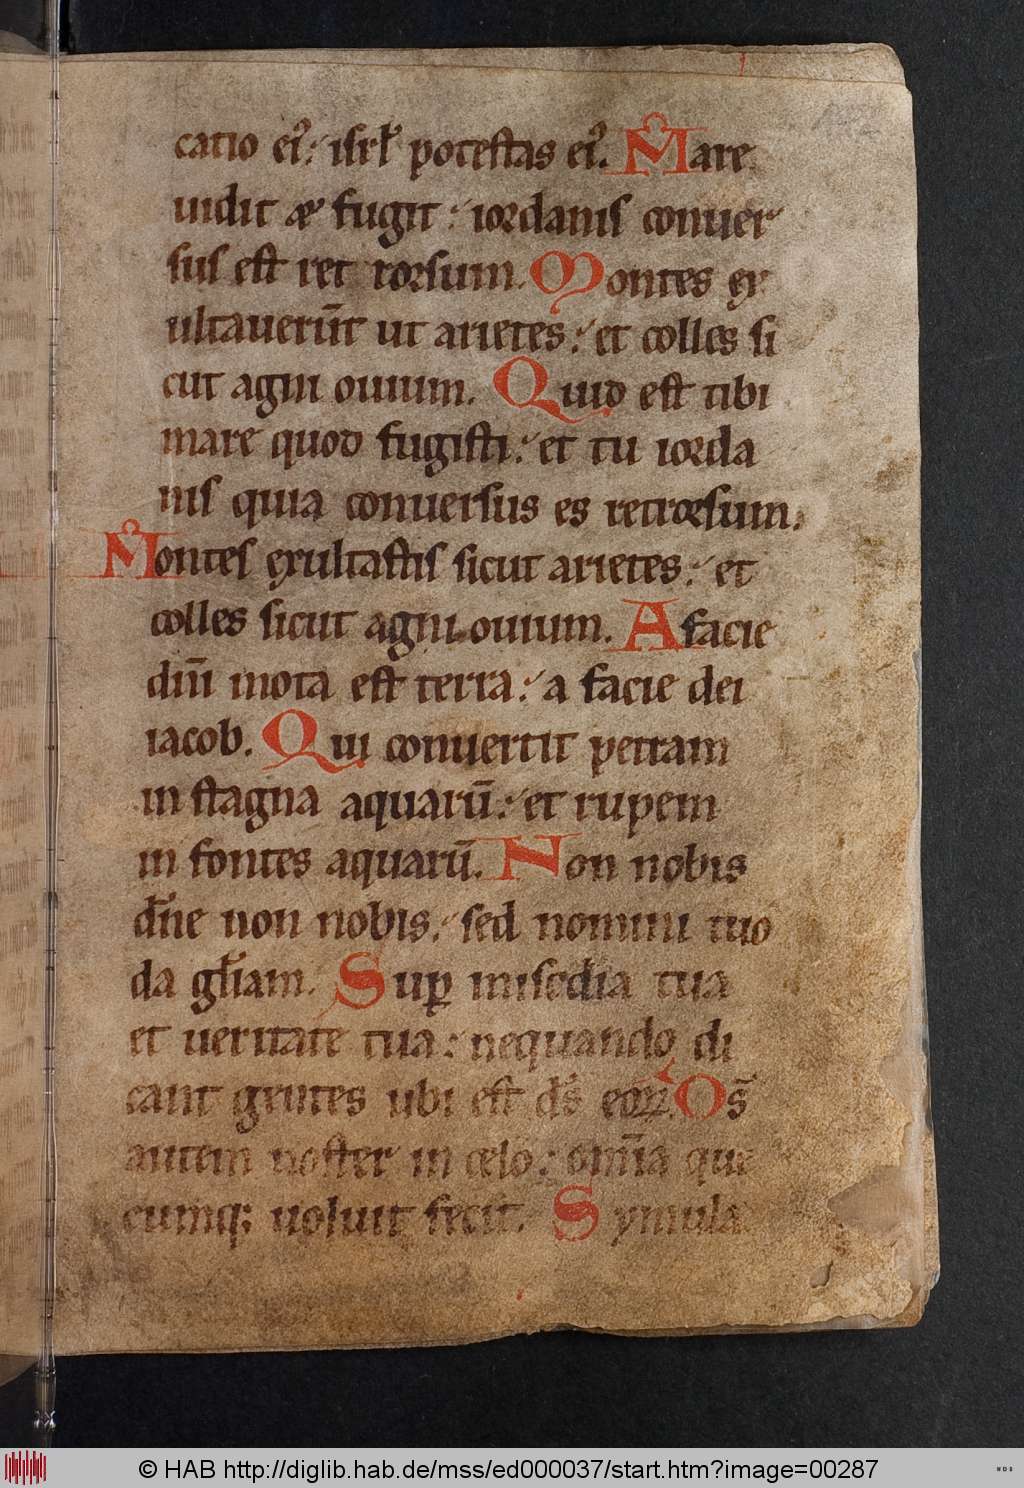 catio ei᷒: isrl̄ potestas ei᷒. Mare
uidit & fugit: iordanis conuer
sus est ret rorsum. Montes ex
ultauerūt ut arietes: et colles si
cut agni ouium. Quid est tibi
mare quod fugisti: et tu iorda
nis quia conuersus es retrorsum.
Montes exultastis sicut arietes: et
colles sicut agni ouium. A facie
dnī mota est terra: a facie dei
iacob. Qui conuertit petram
in stagna aquarū: et rupem
in fontes aquarū. Non nobis
dn̄e non nobis: sed nomini tuo
da gl̄iam. Suꝑ mis̄cdia tua
et ueritate tua: nequando di
cant gentes ubi est ds̄ eoꝝ. Ds̄
autem noster in celo: omīa que
cumq; uoluit fecit. Symula
© HAB http://diglib.hab.de/mss/ed000037/start.htm?image=00287